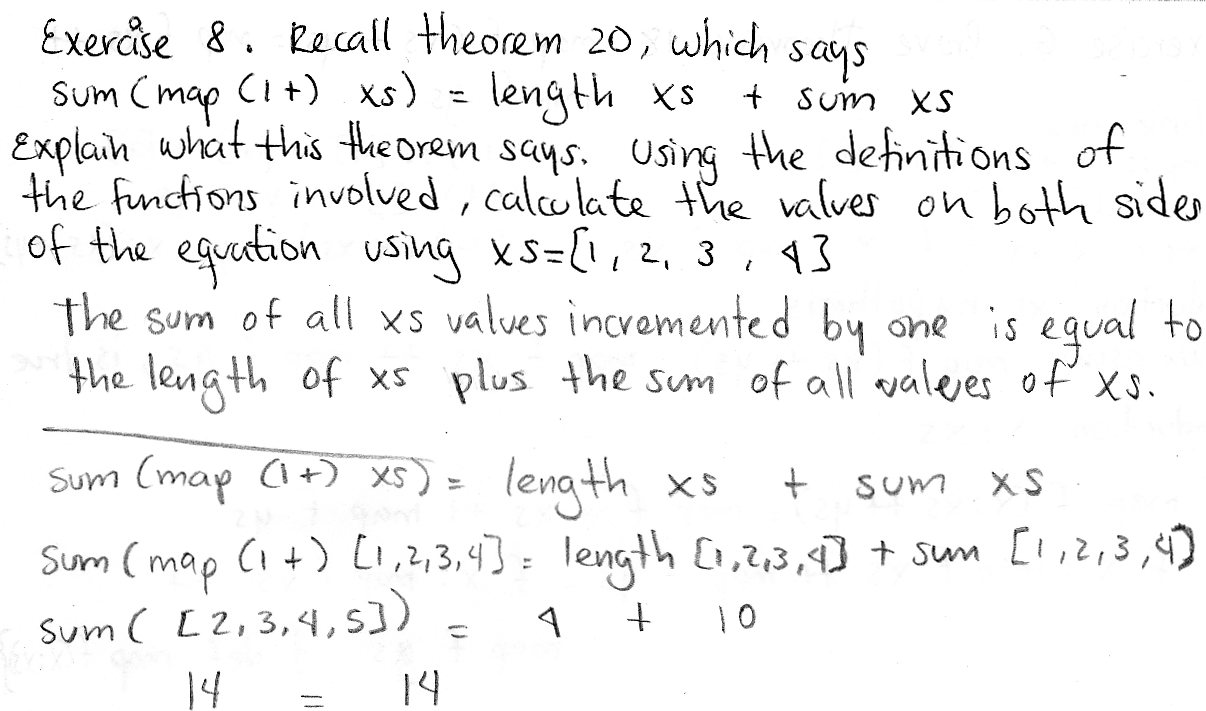 Exercise 8. Recall theorem 20, which says
sum (map (1+) xs) = length xs + sum xs
Explain what this theorem says. Using the definitions of
the functions involved, calculate the values on both sides
of the equation using xs=[1, 2, 3, 4]
The sum of all xs values incremented by one is equal to
the length of xs plus the sum of all values of xs.
sum (map (1+) xs) = length xs + sum xs
sum (map (1+) [1,2,3,4] = length [1,2,3,4] + sum [1,2,3,4]
sum ( [2,3,4,5]) = 4 + 10
14 = 14